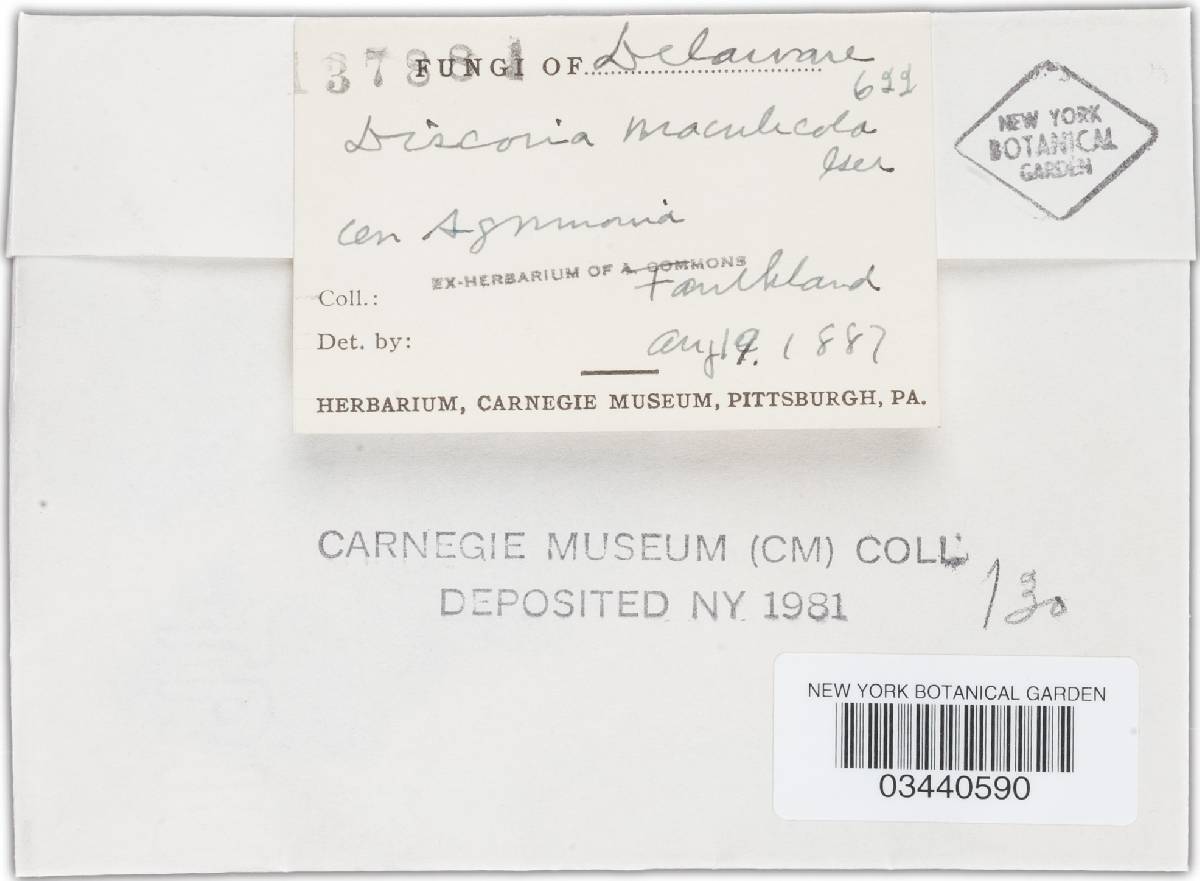 FUNGI OF Delaware
699
Discosia maculicola
Ger
on Agrimonia
EX-HERBARIUM OF A. COMMONS
Faulkland
Coll.:
Det. by:
Aug 19. 1887
HERBARIUM, CARNEGIE MUSEUM, PITTSBURGH, PA.
NEW YORK
BOTANICAL
GARDEN
CARNEGIE MUSEUM (CM) COLL
DEPOSITED NY 1981
NEW YORK BOTANICAL GARDEN
03440590